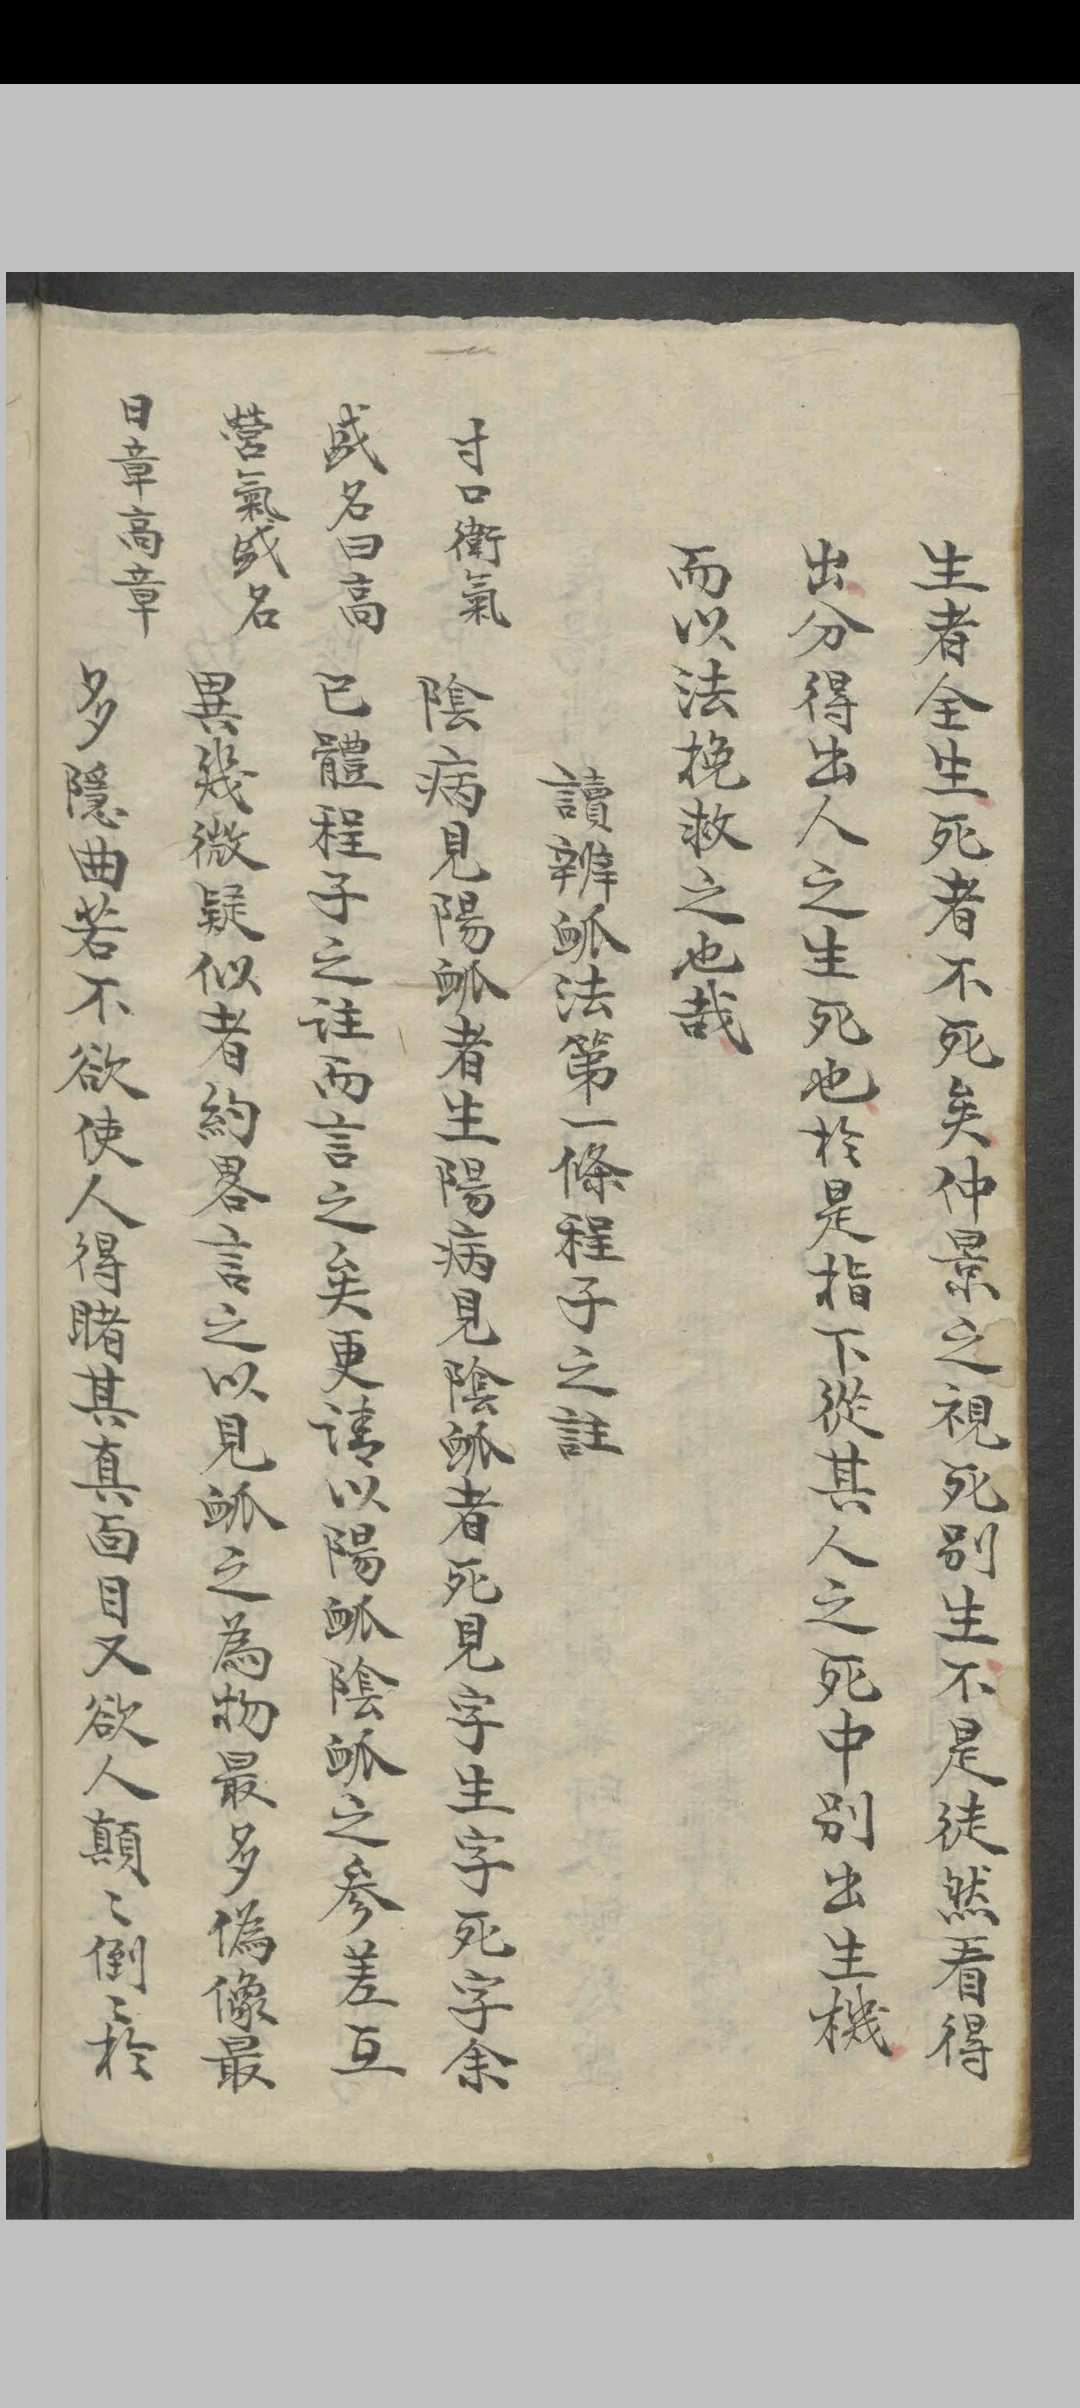 生者全生死者不死矣仲景之視死別生不是徒然看得
出分得出人之生死也於是指下從其人之死中別出生機
而以法挽救之也哉
讀辨脈法第一條程子之註
陰病見陽脈者生陽病見陰脈者死見字生字死字余
已體程子之註而言之矣更請以陽脈陰脈之參差互
異幾微疑似者約畧言之以見脈之為物最多偽像最
多隱曲若不欲使人得睹其真面目又欲人顛〻倒〻於
寸口衛氣
盛名曰高
營氣盛名
曰章高章